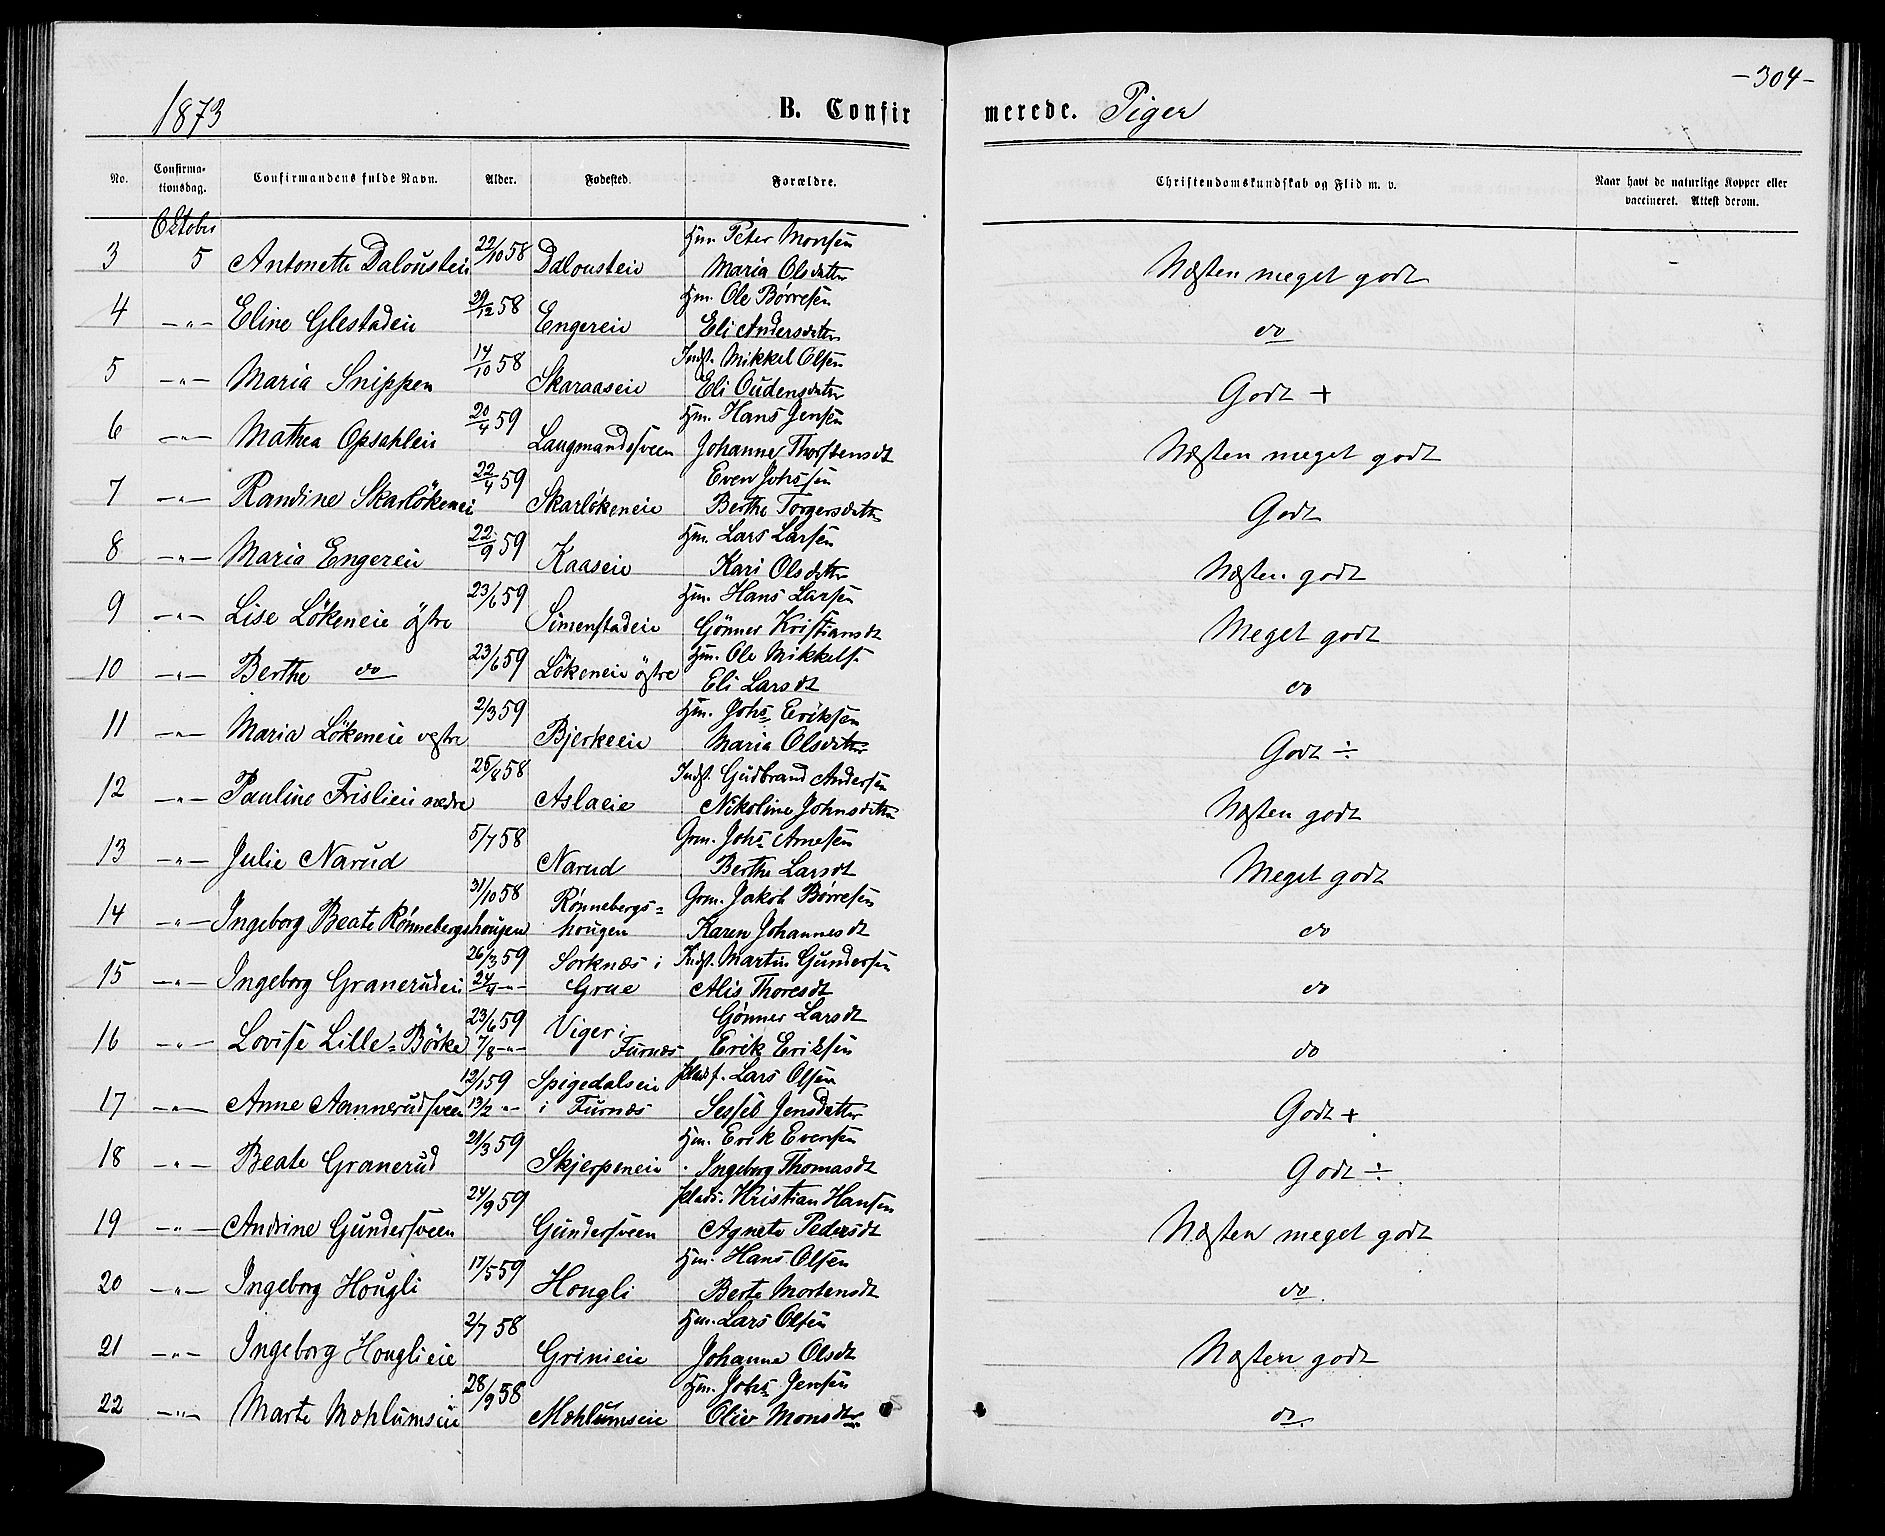 -304-
1873 B. Confirmerede. Piger
No. Confirmationsdag. Confirmandens fulde Navn. Alder. Fødested. Forældre. Christendomskundskab og Flid m. v. Naar havt de naturlige Kopper eller vaccineret. Attest derom.
October
Hm. Peter Monsen
3 5 Antonette Dalousteie 22/10 58 Dalousteie Maria Olsdatter Næsten meget godt
Hm. Ole Börresen
4 -"- Eline Glestadeie 29/12 58 Engereie Eli Andersdatter do
Indst. Mikkel Olsen
5 -"- Maria Snippen 14/10 58 Skaraaseie Eli Oudensdatter Godt +
Hm. Hans Jensen
6 -"- Mathea Opsahleie 20/4 59 Laugmandssveen Johanne Thorstensdt Næsten meget godt
Even Johssen
7 -"- Randine Skarlökeneie 22/4 59 Skarlökeneie Berthe Torgersdatter Godt
Hm. Lars Larsen
8 -"- Maria Engereie 22/9 59 Kaaseie Kari Olsdatter Næsten godt
Hm. Hans Larsen
9 -"- Lise Lökeneie östre 23/6 59 Simenstadeie Gönner Kristiansdt Meget godt
Hm. Ole Mikkels.
10 -"- Berthe do 23/6 59 Lökeneie östre Eli Larsdt do
Hm. Johs Eriksen
11 -"- Maria Lökeneie vestre 2/3 59 Bjerkeeie Maria Olsdatter Godt ÷
Indst. Gudbrand Andersen
12 -"- Pauline Frislieie nedre 26/8 58 Aslaeie Nikoline Johnsdatter Næsten godt
Grm. Johs Arnesen
13 -"- Julie Narud 5/7 58 Narud Berthe Larsdt Meget godt
Grm. Jakob Börresen
14 -"- Ingeborg Beate Rönnebergshougen 31/10 58 Rönnebergs=hougen Karen Johannesdt do
Indst. Martin Gundersen
15 -"- Ingeborg Granerudeie 26/3 59 Sorknæs i Grue Alis Thoresdt do
Gönner Larsdt
16 -"- Lovise Lille=Börke 23/6 59 7/8 -"- Viger i Furnæs Erik Eriksen do
Plads f. Lars Olsen
17 -"- Anne Aannerudsveen 12/1 59 13/2 -"- Spigedalseie i Furnæs Sesseb Jensdatter Godt +
Hm. Erik Evensen
18 -"- Beate Granerud 21/3 59 Skjerpeneie Ingeborg Thomasdt Godt ÷
Plads. Kristian Hansen
19 -"- Andrine Gundersveen 24/9 59 Gundersveen Agnete Pedersdt Næsten meget godt
Hm. Hans Olsen
20 -"- Ingeborg Hougli 17/5 59 Hougli Berte Mortensdt do.
Hm. Lars Olsen
21 -"- Ingeborg Houglieie 2/7 58 Grinieie Johanne Olsdt Næsten godt
Hm. Johs Jensen
22 -"- Marte Mohlumseie 28/9 58 Mohlumseie Oliv Monsdtr do.